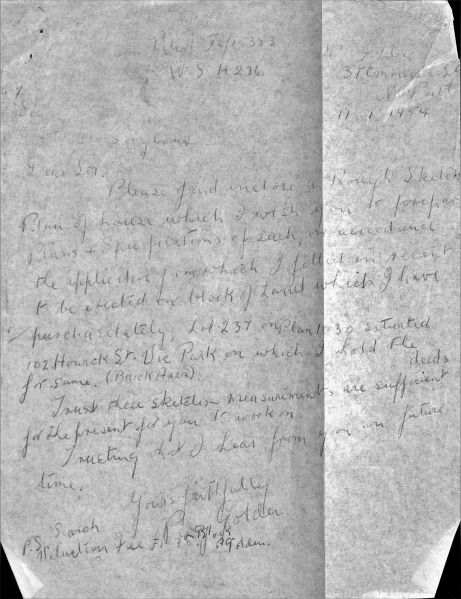 W S H 236
1954
Dear Sir.
Please find enclose a Rough Sketch
Plan of house which I wish you to prepare
Plans & Specifications of such, in accordance
the application form which I filled in recent
to be erected on block of Land which I have
purchase lately, Lot 237 on Plan 1030 situated
102 Howick St. Vic Park on which I hold the
deeds
for same. (Brick Area).
Trust these sketches measurements are sufficient
for the present for you to work on.
Trusting that I hear from you in future
time.
Yours faithfully
Golder.
P.S. Search
Valuation Fee for Block
P Golder.